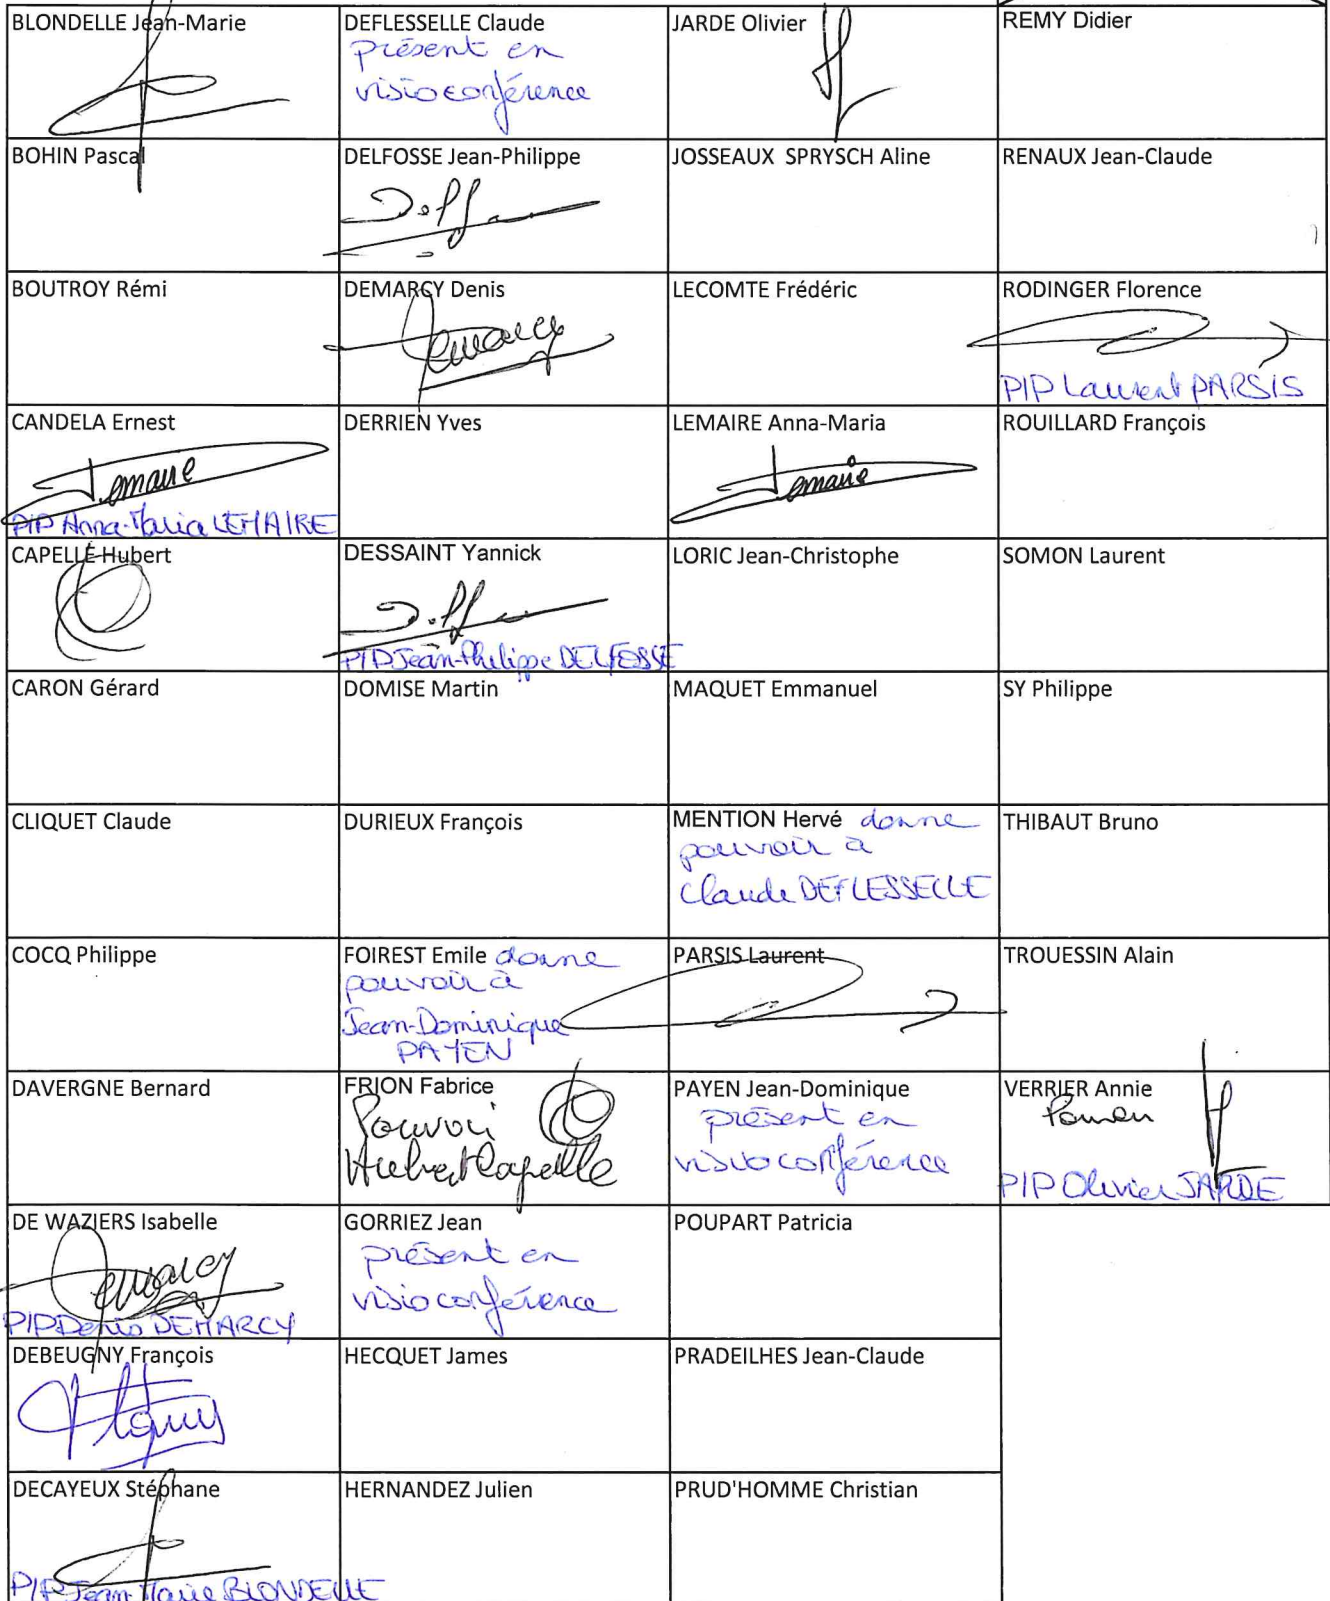 BLONDELLE Jean-Marie
DEFLESSELLE Claude
présent en
visioconférence
JARDE Olivier
REMY Didier
BOHIN Pascal
DELFOSSE Jean-Philippe
JOSSEAUX SPRYSCH Aline
RENAUX Jean-Claude
BOUTROY Rémi
DEMARCY Denis
Demarcy
LECOMTE Frédéric
RODINGER Florence
PIP Laurent PARSIS
CANDELA Ernest
Lemaire
PIP Anna-Maria LEMAIRE
DERRIEN Yves
LEMAIRE Anna-Maria
Lemaire
ROUILLARD François
CAPELLE Hubert
DESSAINT Yannick
PIP Jean-Philippe DELFOSSE
LORIC Jean-Christophe
SOMON Laurent
CARON Gérard
DOMISE Martin
MAQUET Emmanuel
SY Philippe
CLIQUET Claude
DURIEUX François
MENTION Hervé donne
pouvoir à
Claude DEFLESSELLE
THIBAUT Bruno
COCQ Philippe
FOIREST Emile donne
pouvoir à
Jean-Dominique
PAYEN
PARSIS Laurent
TROUESSIN Alain
DAVERGNE Bernard
FRION Fabrice
Pouvoir
Hubert Capelle
PAYEN Jean-Dominique
présent en
visioconférence
VERRIER Annie
PIP Olivier JARDE
DE WAZIERS Isabelle
Demarcy
PIP Denis DEMARCY
GORRIEZ Jean
présent en
visioconférence
POUPART Patricia
DEBEUGNY François
HECQUET James
PRADEILHES Jean-Claude
DECAYEUX Stéphane
PIP Jean-Marie BLONDELLE
HERNANDEZ Julien
PRUD'HOMME Christian